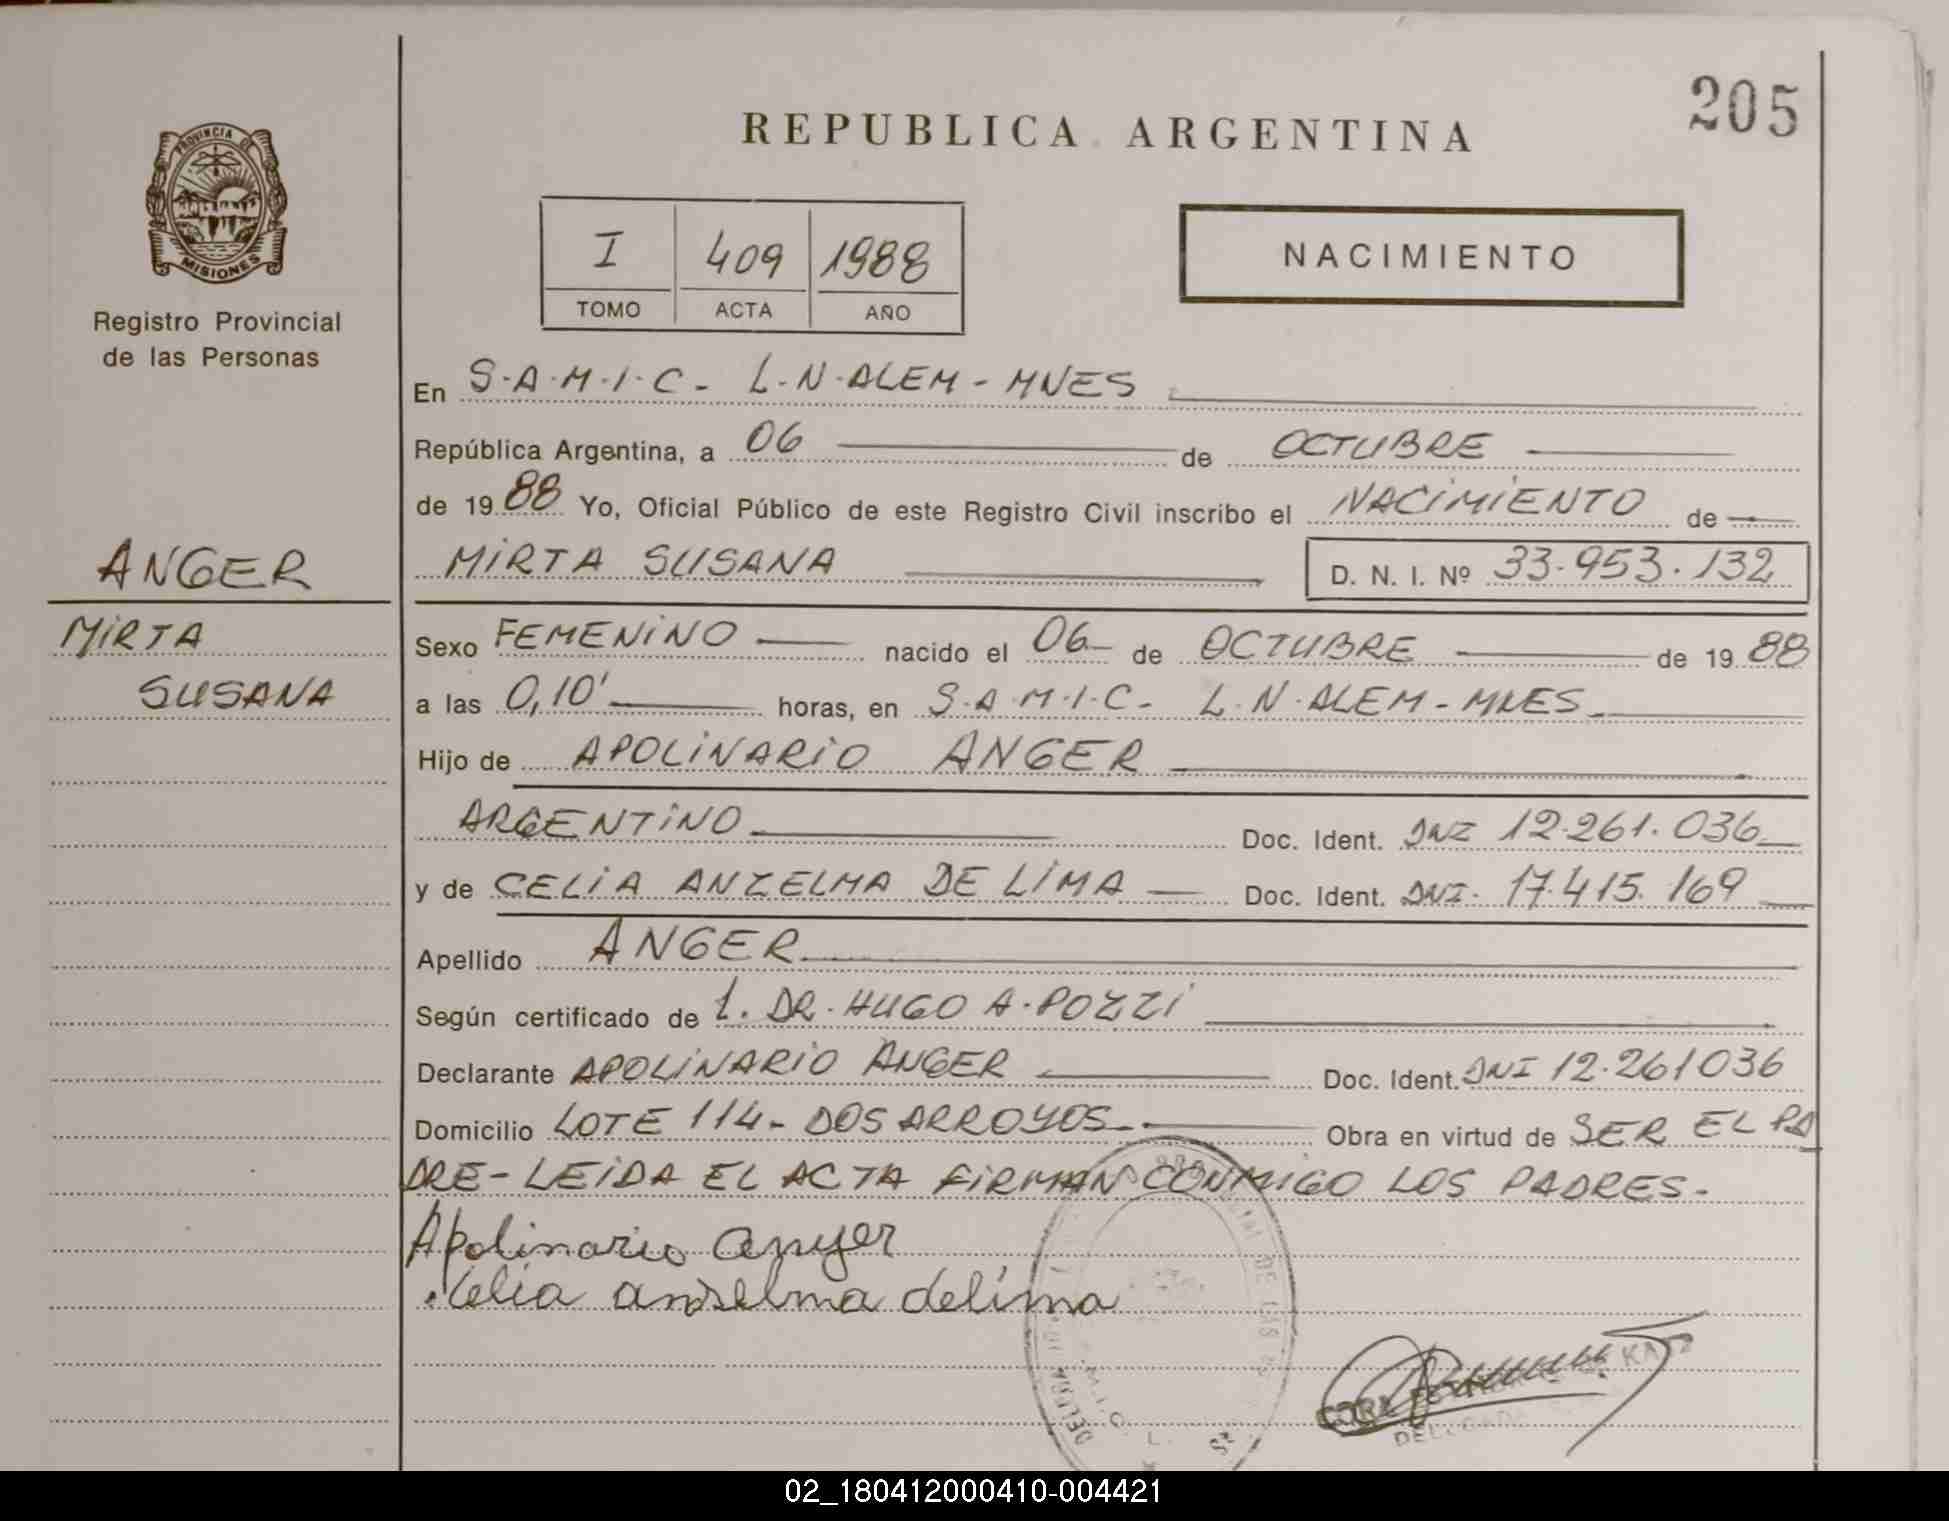 205
REPUBLICA ARGENTINA
PROVINCIA DE
MISIONES
Registro Provincial
de las Personas
I 409 1988
TOMO ACTA AÑO
NACIMIENTO
En S.A.M.I.C- L.N.ALEM-MNES
República Argentina, a 06 de OCTUBRE
de 1988 Yo, Oficial Público de este Registro Civil inscribo el NACIMIENTO de
ANGER
MIRTA SUSANA D. N. I. Nº 33.953.132
MIRTA
SUSANA
Sexo FEMENINO nacido el 06 de OCTUBRE de 1988
a las 0,10' horas, en S.A.M.I.C- L.N.ALEM-MNES
Hijo de APOLINARIO ANGER
ARGENTINO Doc. Ident. DNI 12.261.036
y de CELIA ANZELMA DE LIMA Doc. Ident. DNI. 17.415.169
Apellido ANGER
Según certificado de 1. DR. HUGO A. POZZI
Declarante APOLINARIO ANGER Doc. Ident. DNI 12.261036
Domicilio LOTE 114- DOS ARROYOS Obra en virtud de SER EL PA
DRE- LEIDA EL ACTA FIRMAN CONMIGO LOS PADRES-
Apolinario anger
Celia anzelma delima
DE KATZ
DELEGADA
02_180412000410-004421